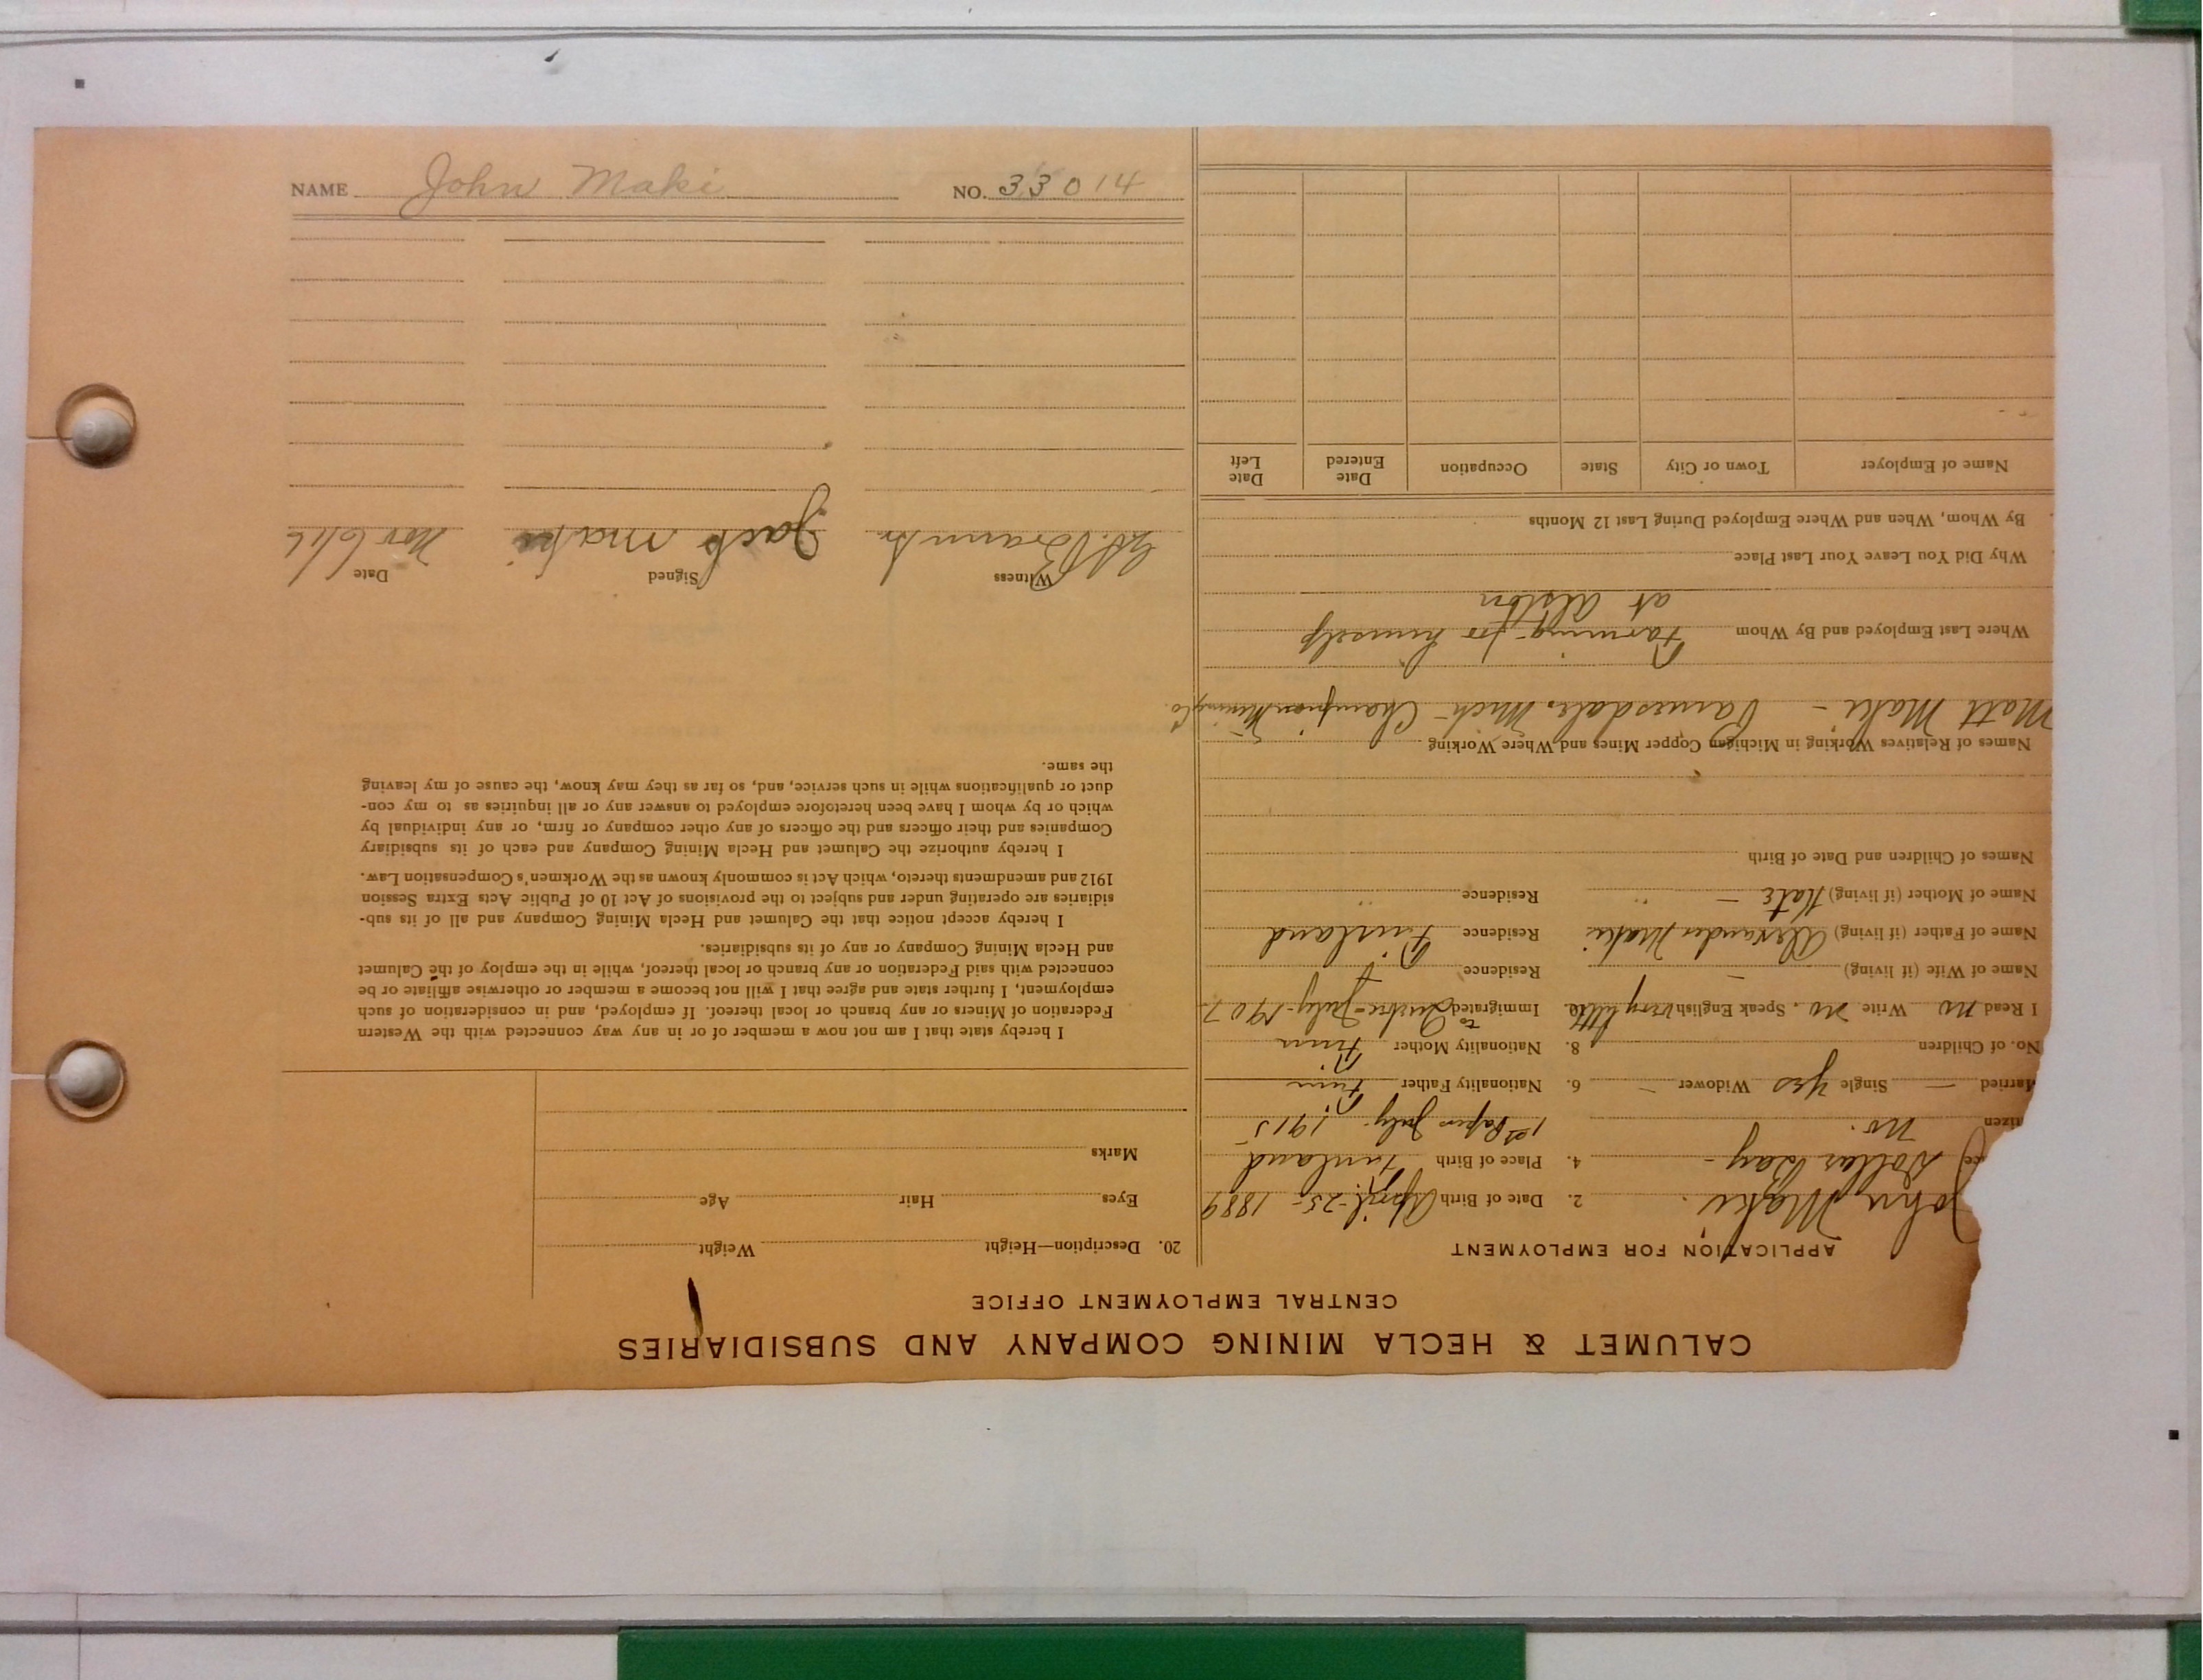 CALUMET & HECLA MINING COMPANY AND SUBSIDIARIES
CENTRAL EMPLOYMENT OFFICE
APPLICATION FOR EMPLOYMENT
John Maki. 2. Date of Birth April-25- 1889
Dollar Bay - 4. Place of Birth Finland
no. 1st Papers July. 1915
Married — Single yes Widower - 6. Nationality Father Finn
No. of Children 8. Nationality Mother Finn
I Read no Write no. Speak English very little Immigrated to July-1907
Name of Wife (if living) — Residence
Name of Father (if living) Alexander Maki Residence Finland
Name of Mother (if living) Kate — " Residence "
Names of Children and Date of Birth
Names of Relatives Working in Michigan Copper Mines and Where Working
Matt Maki - Painesdale, Mich - Champion Mining Co.
Where Last Employed and By Whom Farming for himself
at Alston
Why Did You Leave Your Last Place
By Whom, When and Where Employed During Last 12 Months
Name of Employer Town or City State Occupation Date Entered Date Left
20. Description—Height Weight
Eyes Hair Age
Marks
I hereby state that I am not now a member of or in any way connected with the Western
Federation of Miners or any branch or local thereof. If employed, and in consideration of such
employment, I further state and agree that I will not become a member or otherwise affiliate or be
connected with said Federation or any branch or local thereof, while in the employ of the Calumet
and Hecla Mining Company or any of its subsidiaries.
I hereby accept notice that the Calumet and Hecla Mining Company and all of its sub-
sidiaries are operating under and subject to the provisions of Act 10 of Public Acts Extra Session
1912 and amendments thereto, which Act is commonly known as the Workmen's Compensation Law.
I hereby authorize the Calumet and Hecla Mining Company and each of its subsidiary
Companies and their officers and the officers of any other company or firm, or any individual by
which or by whom I have been heretofore employed to answer any or all inquiries as to my con-
duct or qualifications while in such service, and, so far as they may know, the cause of my leaving
the same.
Witness Signed Date
Jack maki Nov
NAME John Maki NO. 33014